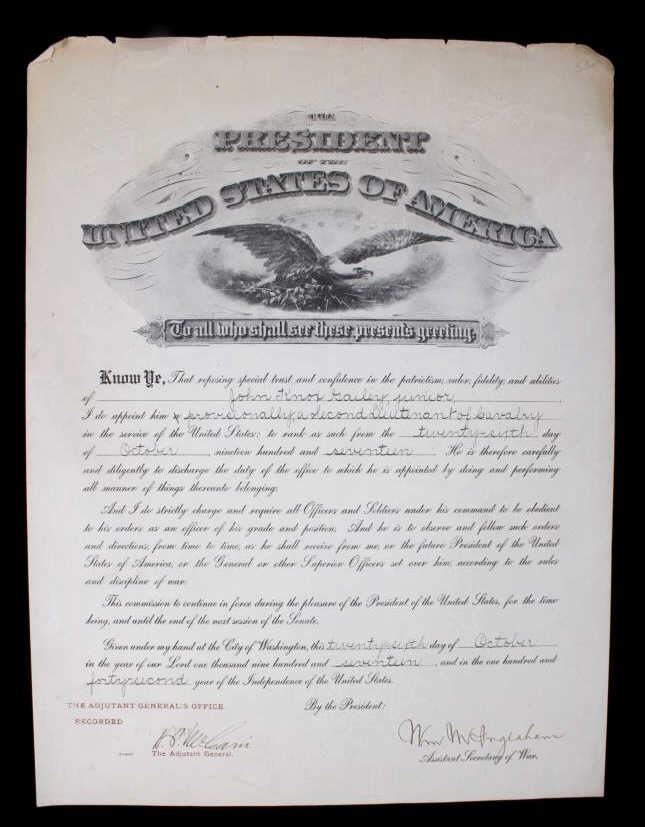 THE
PRESIDENT
OF THE
UNITED STATES OF AMERICA
To all who shall see these presents greeting:
Know Ye, That reposing special trust and confidence in the patriotism, valor, fidelity, and abilities
of John Knox Gailey, junior,
I do appoint him provisionally a second lieutenant of Cavalry
in the service of the United States: to rank as such from the twenty-sixth day
of October nineteen hundred and seventeen He is therefore carefully
and diligently to discharge the duty of the office to which he is appointed by doing and performing
all manner of things thereunto belonging.
And I do strictly charge and require all Officers and Soldiers under his command to be obedient
to his orders as an officer of his grade and position. And he is to observe and follow such orders
and directions, from time to time, as he shall receive from me, or the future President of the United
States of America, or the General or other Superior Officers set over him, according to the rules
and discipline of war.
This commission to continue in force during the pleasure of the President of the United States, for the time
being, and until the end of the next session of the Senate.
Given under my hand at the City of Washington, this twenty-sixth day of October
in the year of our Lord one thousand nine hundred and seventeen, and in the one hundred and
forty-second year of the Independence of the United States.
THE ADJUTANT GENERAL'S OFFICE
By the President:
RECORDED
Wm M Ingraham
The Adjutant General.
Assistant Secretary of War.